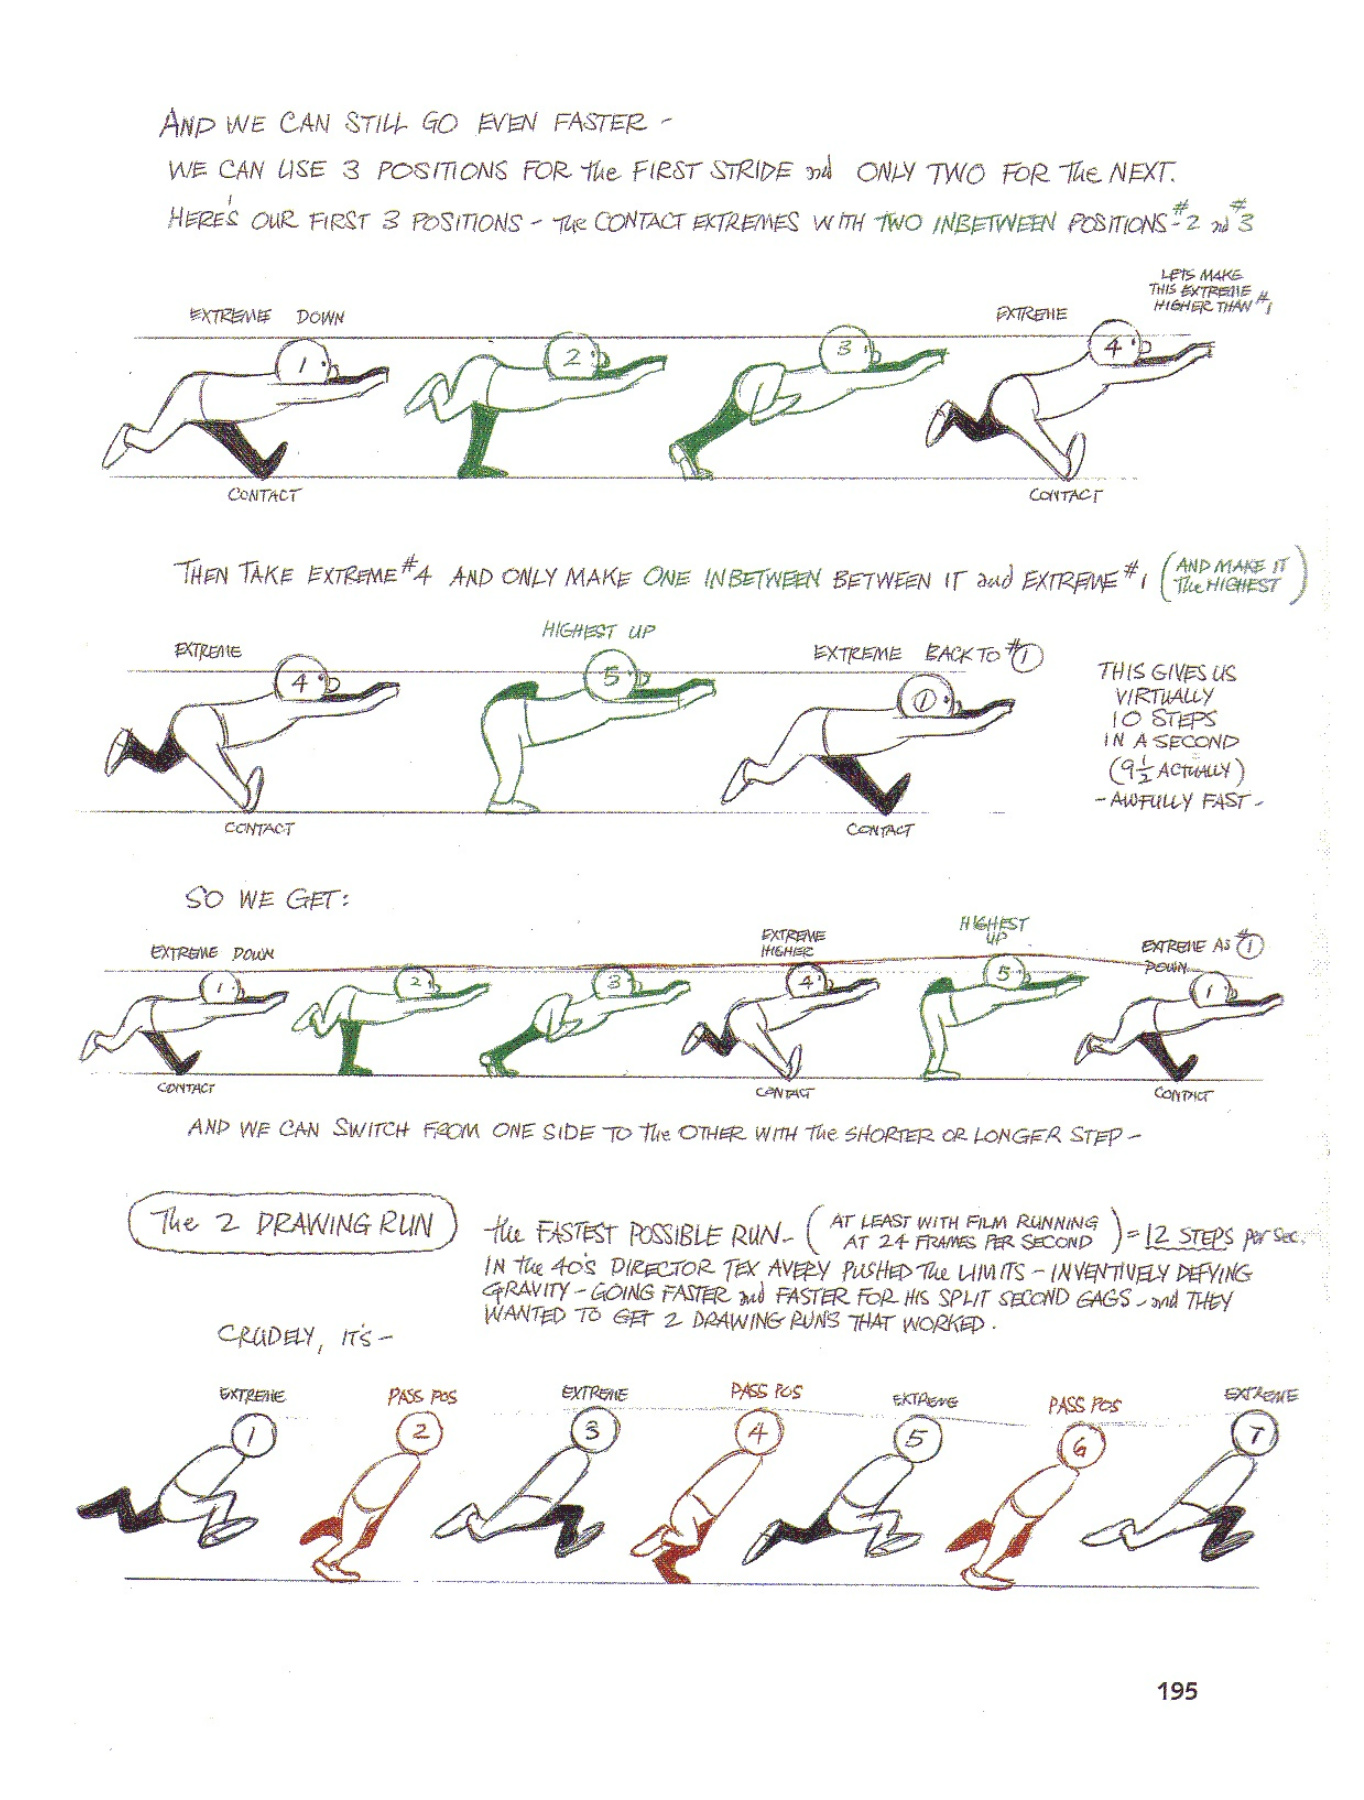 AND WE CAN STILL GO EVEN FASTER -
WE CAN USE 3 POSITIONS FOR the FIRST STRIDE and ONLY TWO FOR The NEXT.
HERE'S OUR FIRST 3 POSITIONS - The CONTACT EXTREMES WITH TWO INBETWEEN POSITIONS - #2 and #3
LETS MAKE
THIS EXTREME
HIGHER THAN #1
EXTREME DOWN
EXTREME
1
2
3
4
CONTACT
CONTACT
THEN TAKE EXTREME #4 AND ONLY MAKE ONE INBETWEEN BETWEEN IT and EXTREME #1 (AND MAKE IT
The HIGHEST)
EXTREME
HIGHEST UP
EXTREME BACK TO #1
4
5
1
CONTACT
CONTACT
THIS GIVES US
VIRTUALLY
10 STEPS
IN A SECOND
(9½ ACTUALLY)
- AWFULLY FAST -
SO WE GET:
EXTREME DOWN
EXTREME
HIGHER
HIGHEST
UP
EXTREME AS #1
DOWN
1
2
3
4
5
1
CONTACT
CONTACT
CONTACT
AND WE CAN SWITCH FROM ONE SIDE TO The OTHER WITH The SHORTER OR LONGER STEP -
The 2 DRAWING RUN
the FASTEST POSSIBLE RUN - (AT LEAST WITH FILM RUNNING
AT 24 FRAMES PER SECOND) = 12 STEPS per sec.
IN the 40'S DIRECTOR TEX AVERY PUSHED The LIMITS - INVENTIVELY DEFYING
GRAVITY - GOING FASTER and FASTER FOR HIS SPLIT SECOND GAGS - and THEY
WANTED TO GET 2 DRAWING RUNS THAT WORKED.
CRUDELY, IT'S -
EXTREME
PASS POS
EXTREME
PASS POS
EXTREME
PASS POS
EXTREME
1
2
3
4
5
6
7
195